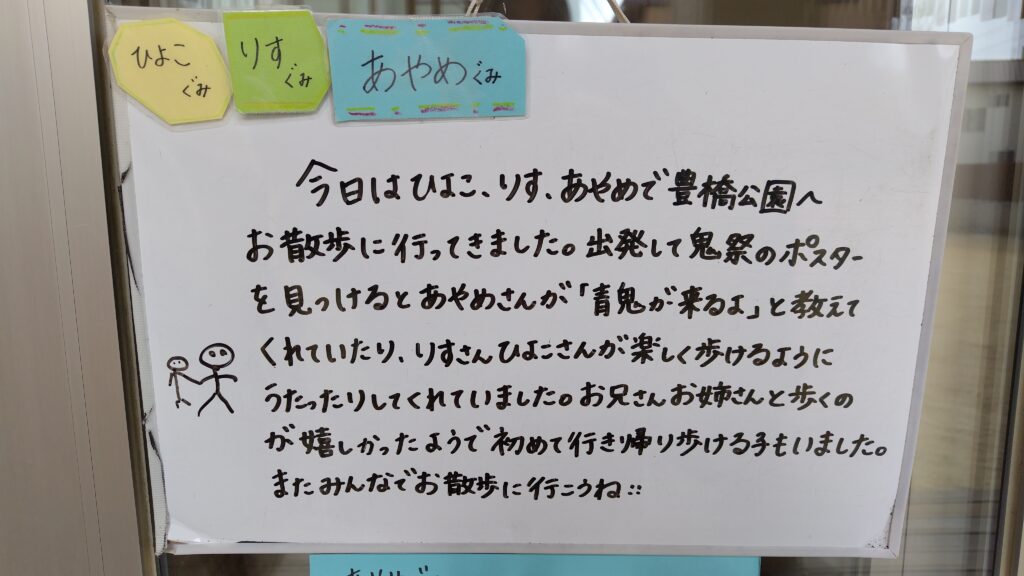 ひよこ
ぐみ
りす
ぐみ
あやめぐみ
今日はひよこ、りす、あやめで豊橋公園へ
お散歩に行ってきました。出発して鬼祭のポスター
を見つけるとあやめさんが「青鬼が来るよ」と教えて
くれていたり、りすさんひよこさんが楽しく歩けるように
うたったりしてくれていました。お兄さんお姉さんと歩くの
が嬉しかったようで初めて行き帰り歩ける子もいました。
またみんなでお散歩に行こうね::